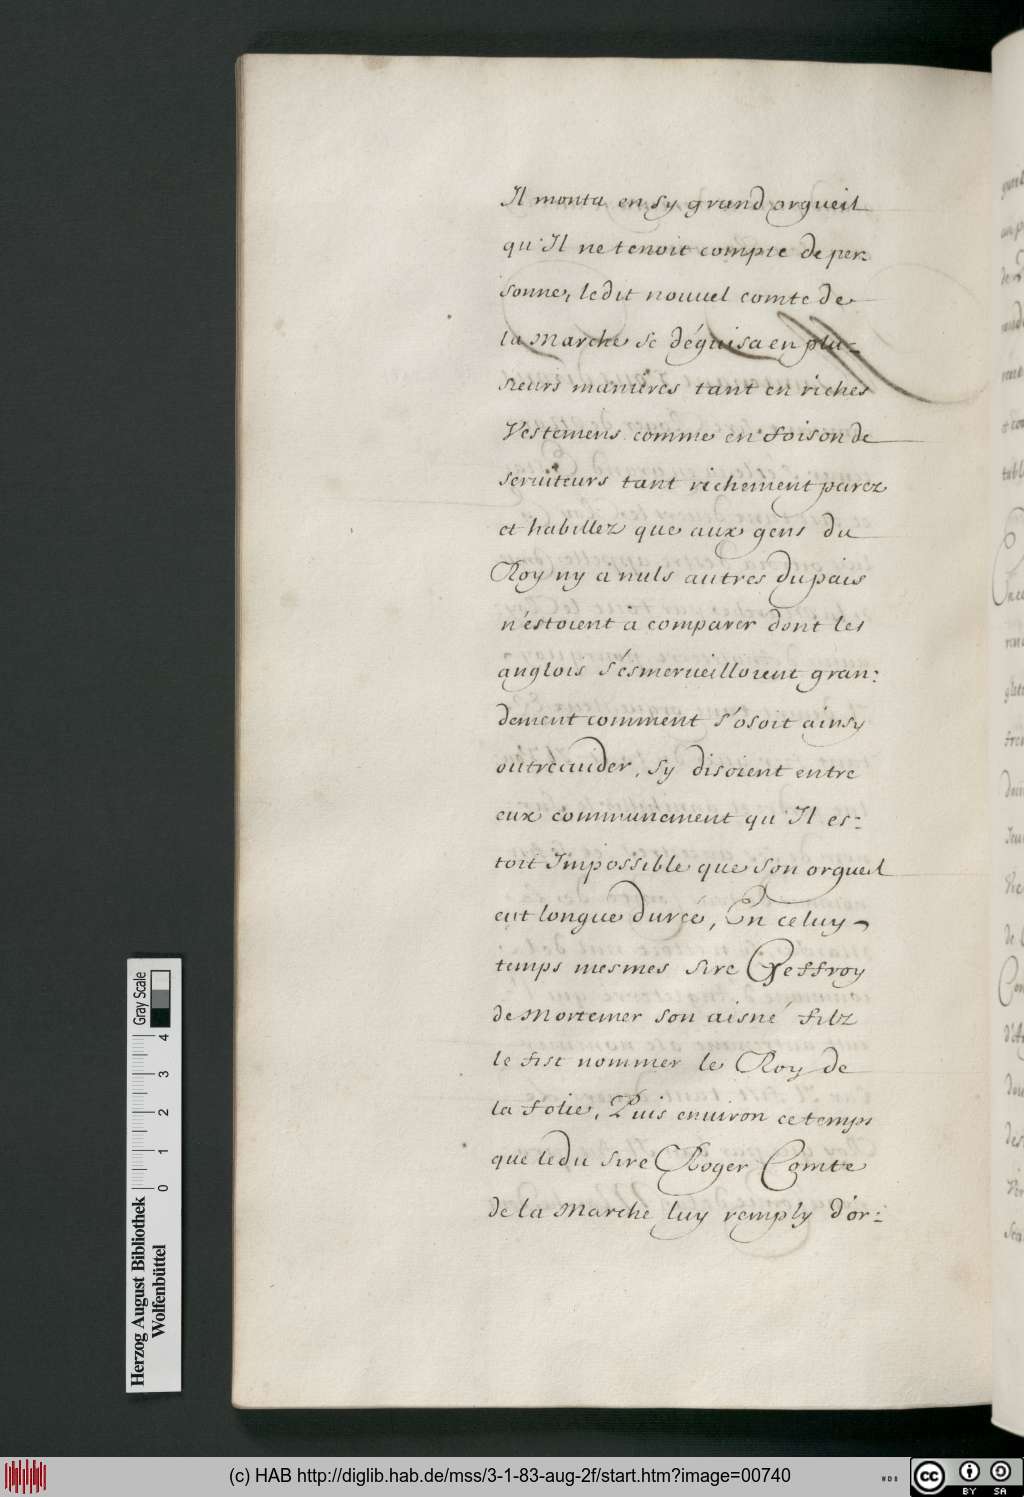 Il monta en sy grand orgueil
qu'Il ne tenoit compte de per:
sonne, ledit nouuel comte de
la Marche se déguisa en plu:
sieurs manieres tant en riches
Vestemens comme en foison de
seruiteurs tant richement parez
et habillez que aux gens du
Roy ny a nuls autres du pais
n'estoient à comparer dont les
anglois s'ésmerueilloient gran:
dement comment s'osoit ainsy
outrecuider, sy disoient entre
eux communement qu'Il es:
toit Impossible que son orgueil
eut longue durée, En celuy
temps mesmes sire Geffroy
de Mortemer son aisné filz
le fist nommer le Roy de
la folie, Puis enuiron ce temps
que ledu sire Roger Comte
de la Marche luy remply d'or:
Herzog August Bibliothek
Wolfenbüttel
0 1 2 3 4
Gray Scale
(c) HAB http://diglib.hab.de/mss/3-1-83-aug-2f/start.htm?image=00740
WDB
cc BY SA